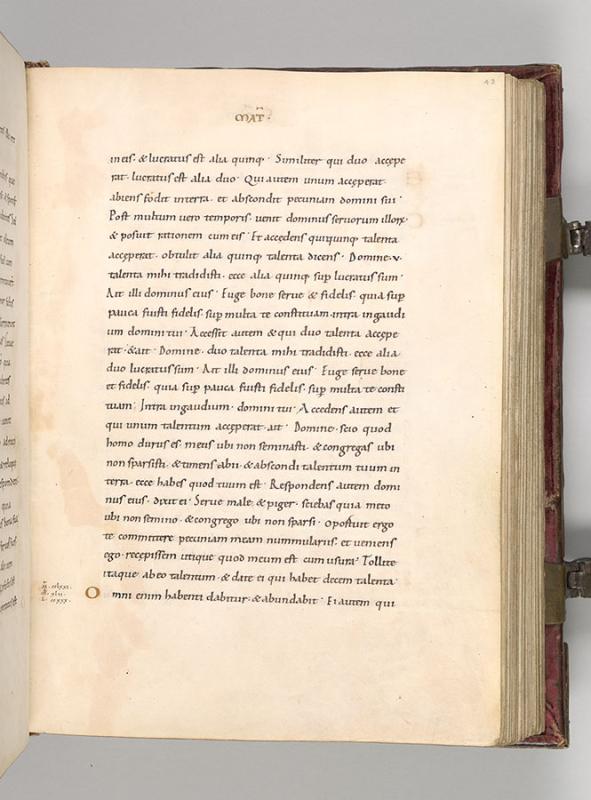 43
MAT̄·
in eis· & lucratus est alia quinq· Similiter qui duo accepe
rat· lucratus est alia duo· Qui autem unum acceperat·
abiens fodit interra· et abscondit pecuniam domini sui·
Post multum uero temporis· uenit dominus seruorum illorꝝ·
& posuit rationem cum eis· Et accedens qui quinq talenta
acceperat· obtulit alia quinq talenta dicens· Domine· v·
talenta mihi tradidisti· ecce alia quinq sup lucratus sum·
Ait illi dominus eius· Euge bone serue & fidelis· quia sup
pauca fuisti fidelis· sup multa te constituam· intra in gaudi
um domini tui· Accessit autem & qui duo talenta accepe
rat· & ait· Domine· duo talenta mihi tradidisti· ecce alia
duo lucratus sum· Ait illi dominus eius· Euge serue bone
et fidelis· quia sup pauca fuisti fidelis· sup multa te consti
tuam· Intra ingaudium· domini tui· Accedens autem et
qui unum talentum acceperat· ait· Domine· scio quod
homo durus es· metis ubi non seminasti· & congregas ubi
non sparsisti· & timens abii· & abscondi talentum tuum in
terra· ecce habes quod tuum est· Respondens autem domi
nus eius· dixit ei· Serue male & piger· sciebas quia meto
ubi non semino· & congrego ubi non sparsi· Oportuit ergo
te committere pecuniam meam nummulariis· et ueniens
ego· recepissem utique quod meum est cum usura· Tollite
itaque ab eo talentum· & date ei qui habet decem talenta·
Omni enim habenti dabitur· & abundabit· Ei autem qui